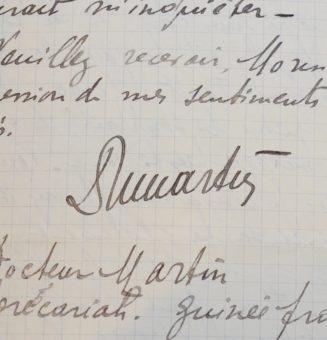 m'inquiéter -
Veuillez recevoir, Mons
ression de mes sentiments
s.
Dr Martin
Docteur Martin
orécariah. Guinée fra